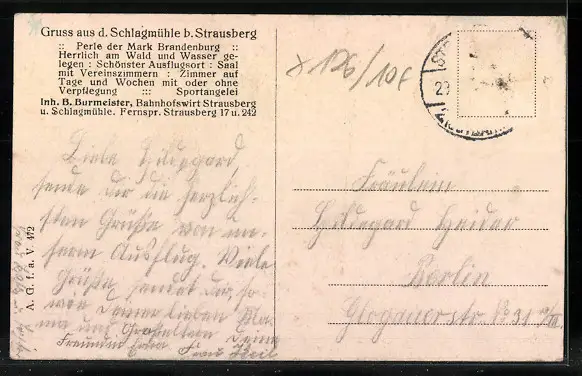 Gruss aus d. Schlagmühle b. Strausberg
:: Perle der Mark Brandenburg ::
Herrlich am Wald und Wasser ge-
legen : Schönster Ausflugsort : Saal
mit Vereinszimmern : Zimmer auf
Tage und Wochen mit oder ohne
Verpflegung ::: Sportangelei
Inh. B. Burmeister, Bahnhofswirt Strausberg
u. Schlagmühle. Fernspr. Strausberg 17 u. 242
A. G. f. a. V. 472
Liebe Hildegard,
sende dir die herzlich-
sten Grüße von un-
serm Ausflug. Viele
Grüße sendet dir, so-
wie Deiner lieben Ma-
ma und Großeltern Deine
Freundin Frau Keil
Fräulein
Hildegard Heider
Berlin
Glogauerstr. No 31